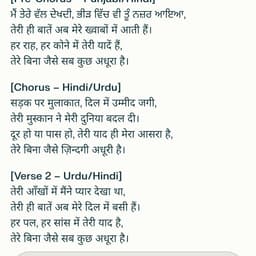 [Pre-Chorus – Punjabi/Hindi]
ਮੈਂ ਤੇਰੇ ਵੱਲ ਦੇਖਦੀ, ਭੀੜ ਵਿੱਚ ਵੀ ਤੂੰ ਨਜ਼ਰ ਆਇਆ,
तेरी ही बातें अब मेरे ख्वाबों में आती हैं।
हर राह, हर कोने में तेरी यादें हैं,
तेरे बिना जैसे सब कुछ अधूरा है।
[Chorus – Hindi/Urdu]
सड़क पर मुलाकात, दिल में उम्मीद जगी,
तेरी मुस्कान ने मेरी दुनिया बदल दी।
दूर हो या पास हो, तेरी याद ही मेरा आसरा है,
तेरे बिना ज़िन्दगी अधूरी है।
[Verse 2 – Urdu/Hindi]
तेरी आँखों में मैंने प्यार देखा था,
तेरी ही बातें अब मेरे दिल में बसी हैं।
हर पल, हर सांस में तेरी याद है,
तेरे बिना जैसे सब कुछ अधूरा है।